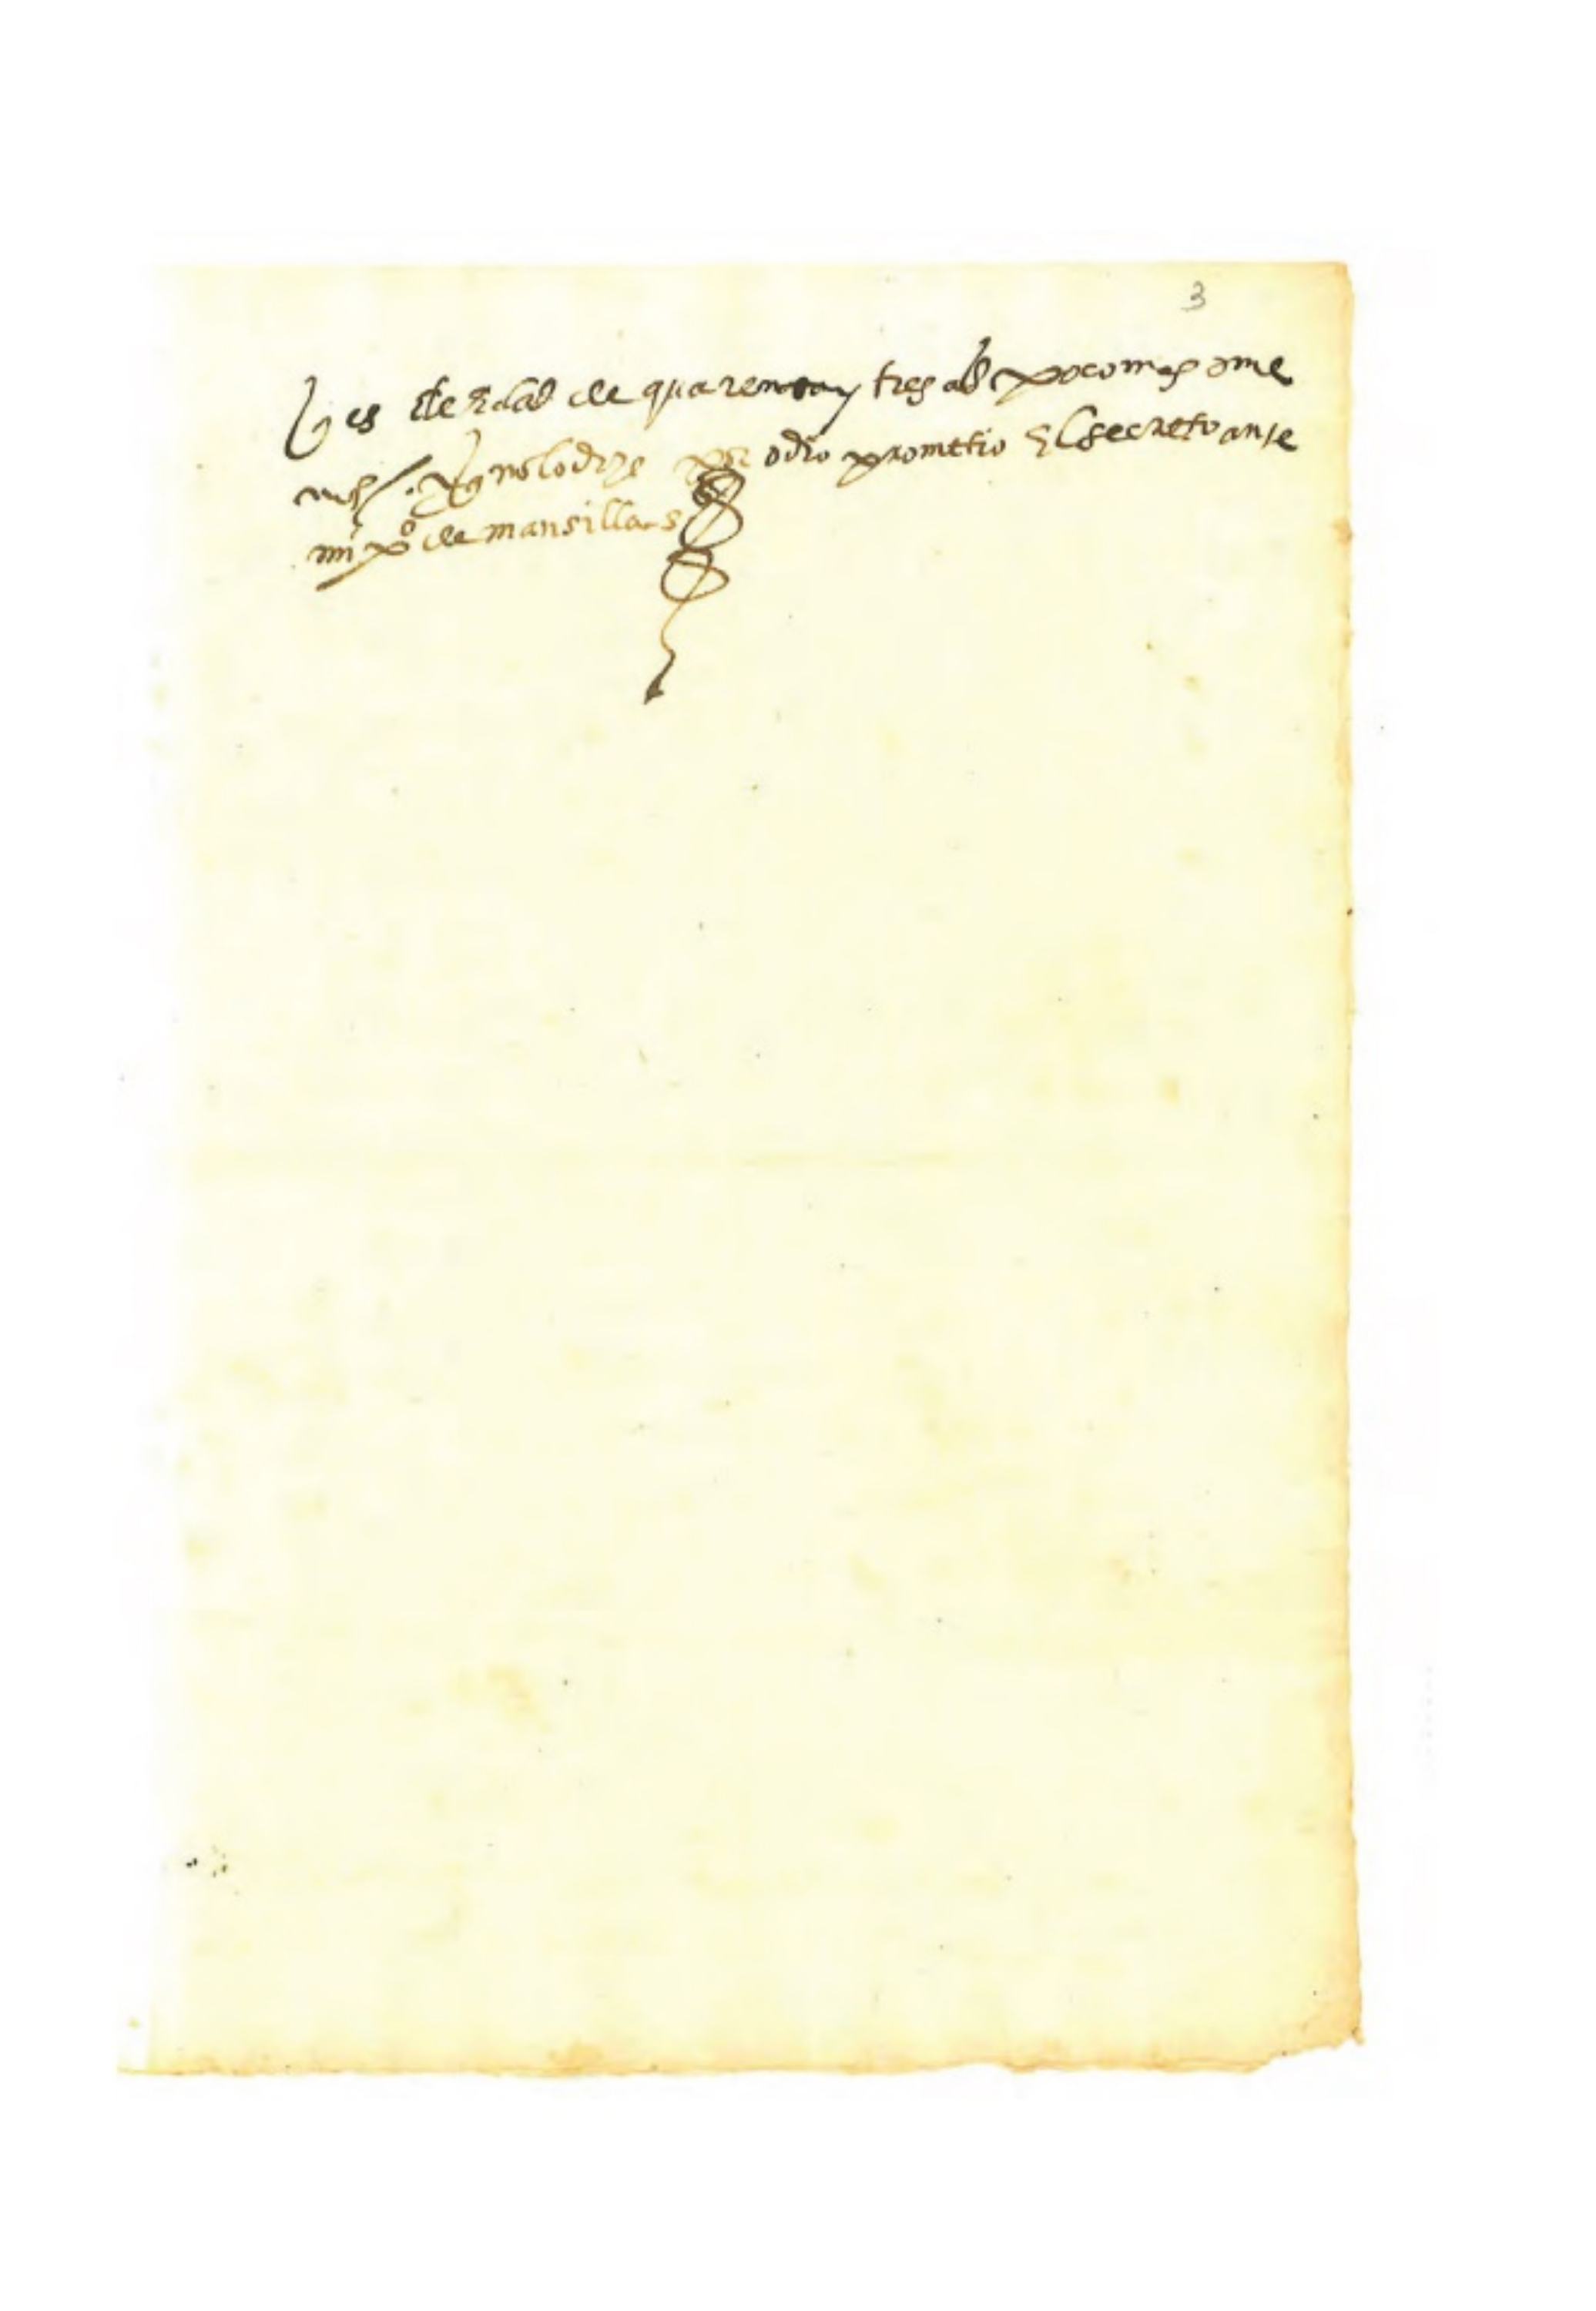 3
y es de hedad de quarenta y tres aos poco mas o me
nos / . y q no lo dize por odio prometio el secreto ante
mi po de mansilla s